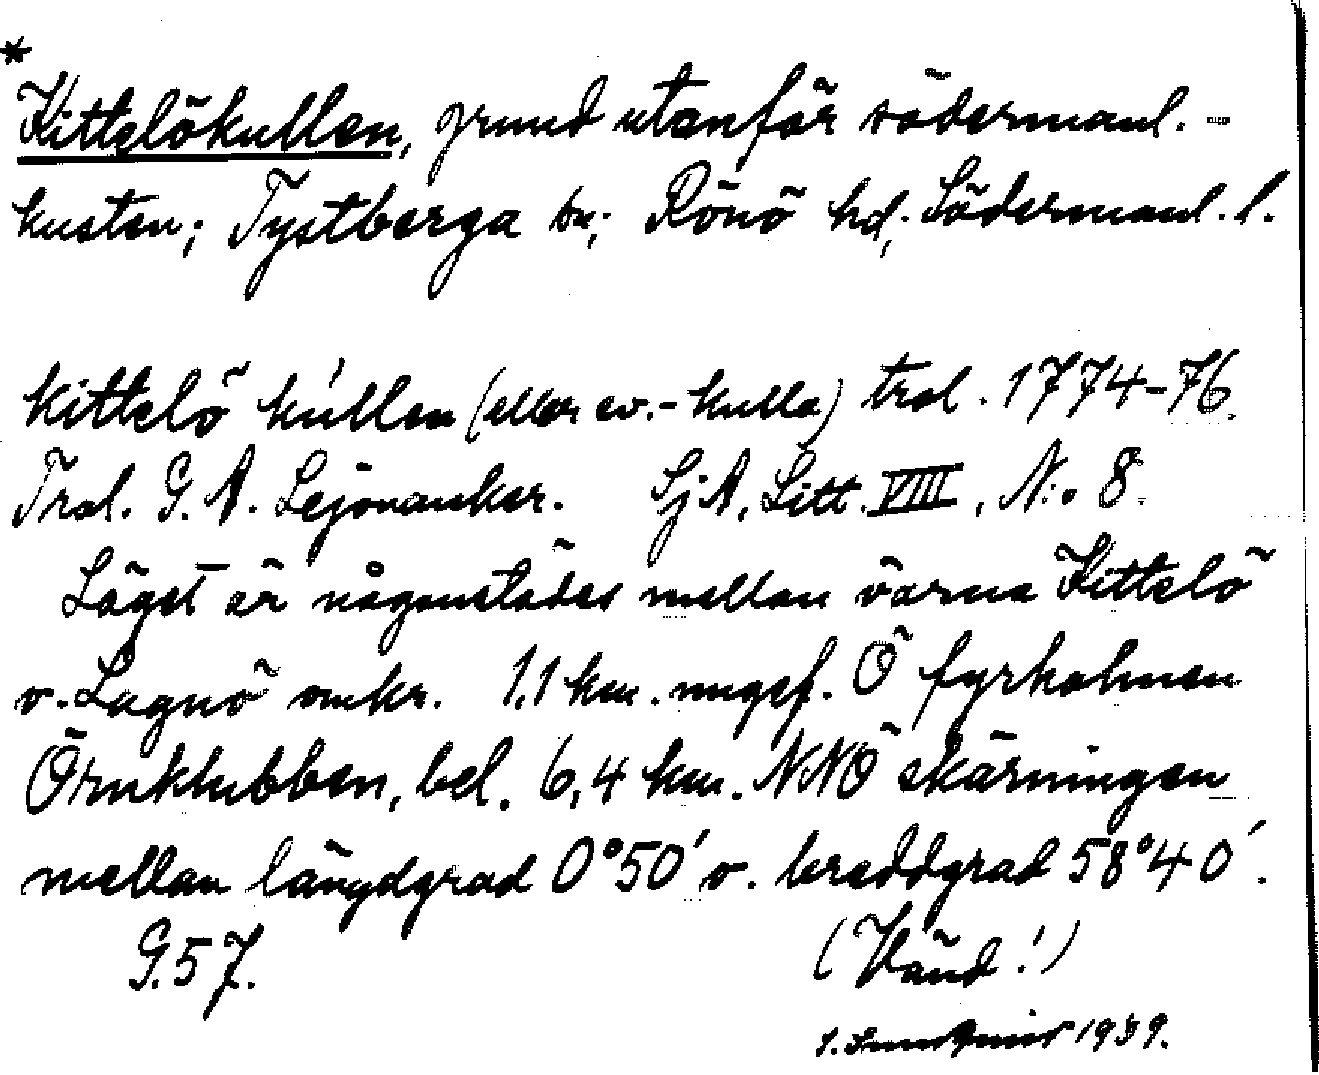 *
Kittelökullen, grund utanför södermanl.-
kusten; Tystberga sn; Rönö hd; Södermanl. l.
Kittelö kullen (eller ev.- kulla) trol. 1774-76.
Trol. G. A. Lejonanker. Sj A, Litt. VIII, No 8.
Läget är någonstädes mellan öarna Kittelö
o. Lagnö omkr. 1,1 km. ungef. Ö fyrholmen
Örnklubben, bel. 6,4 km. NNÖ skärningen
mellan längdgrad 0°50′ o. breddgrad 58°40′.
G.57. (Vänd!)
1939.